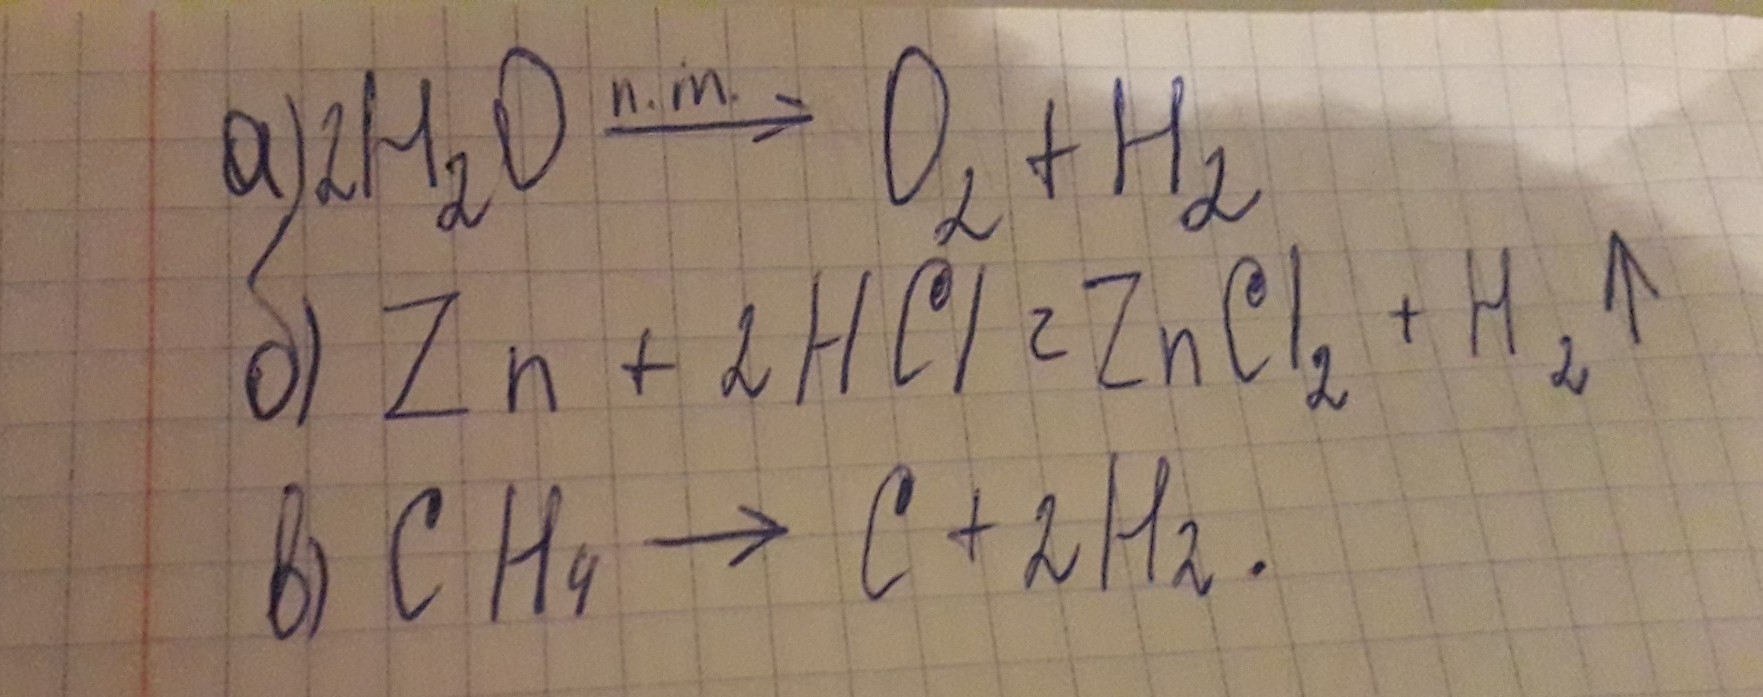 а) 2H₂O п.т. → O₂ + H₂
б) Zn + 2HCl = ZnCl₂ + H₂ ↑
в) CH₄ → C + 2H₂.